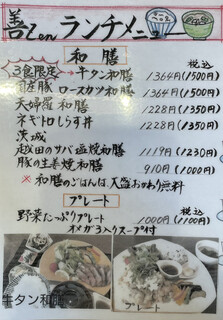 善zen ランチメニュー
和膳
税込
3食限定 → 牛タン和膳 1364円(1500円)
国産豚 ロースカツ和膳 1364円(1500円)
天婦羅 和膳 1228円(1350円)
ネギトロしらす丼 1228円(1350円)
茨城
越田のサバ塩焼和膳 1119円(1230円)
豚の生姜焼和膳 910円(1000円)
※ 和膳のごはんは、大盛おかわり無料
プレート
税込
野菜たっぷりプレート 1000円(1100円)
オメガ3入りスープ付
牛タン和膳
プレート